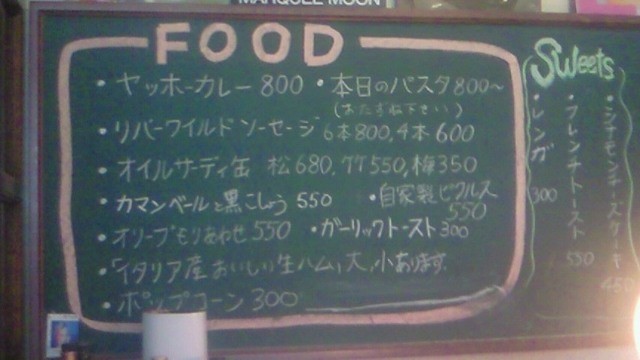 MARQUEE MOON
FOOD
・ヤッホーカレー 800 ・本日のパスタ 800〜
(おたずね下さい)
・リバーワイルドソーセージ 6本800, 4本600
・オイルサーディン缶 松680, 竹550, 梅350
・カマンベールと黒こしょう 550 ・自家製ピクルス 550
・オリーブもりあわせ 550 ・ガーリックトースト 300
・「イタリア産おいしい生ハム」大、小あります。
・ポップコーン 300
Sweets
・シナモンチーズケーキ 450
・フレンチトースト 550
・レンガ 300